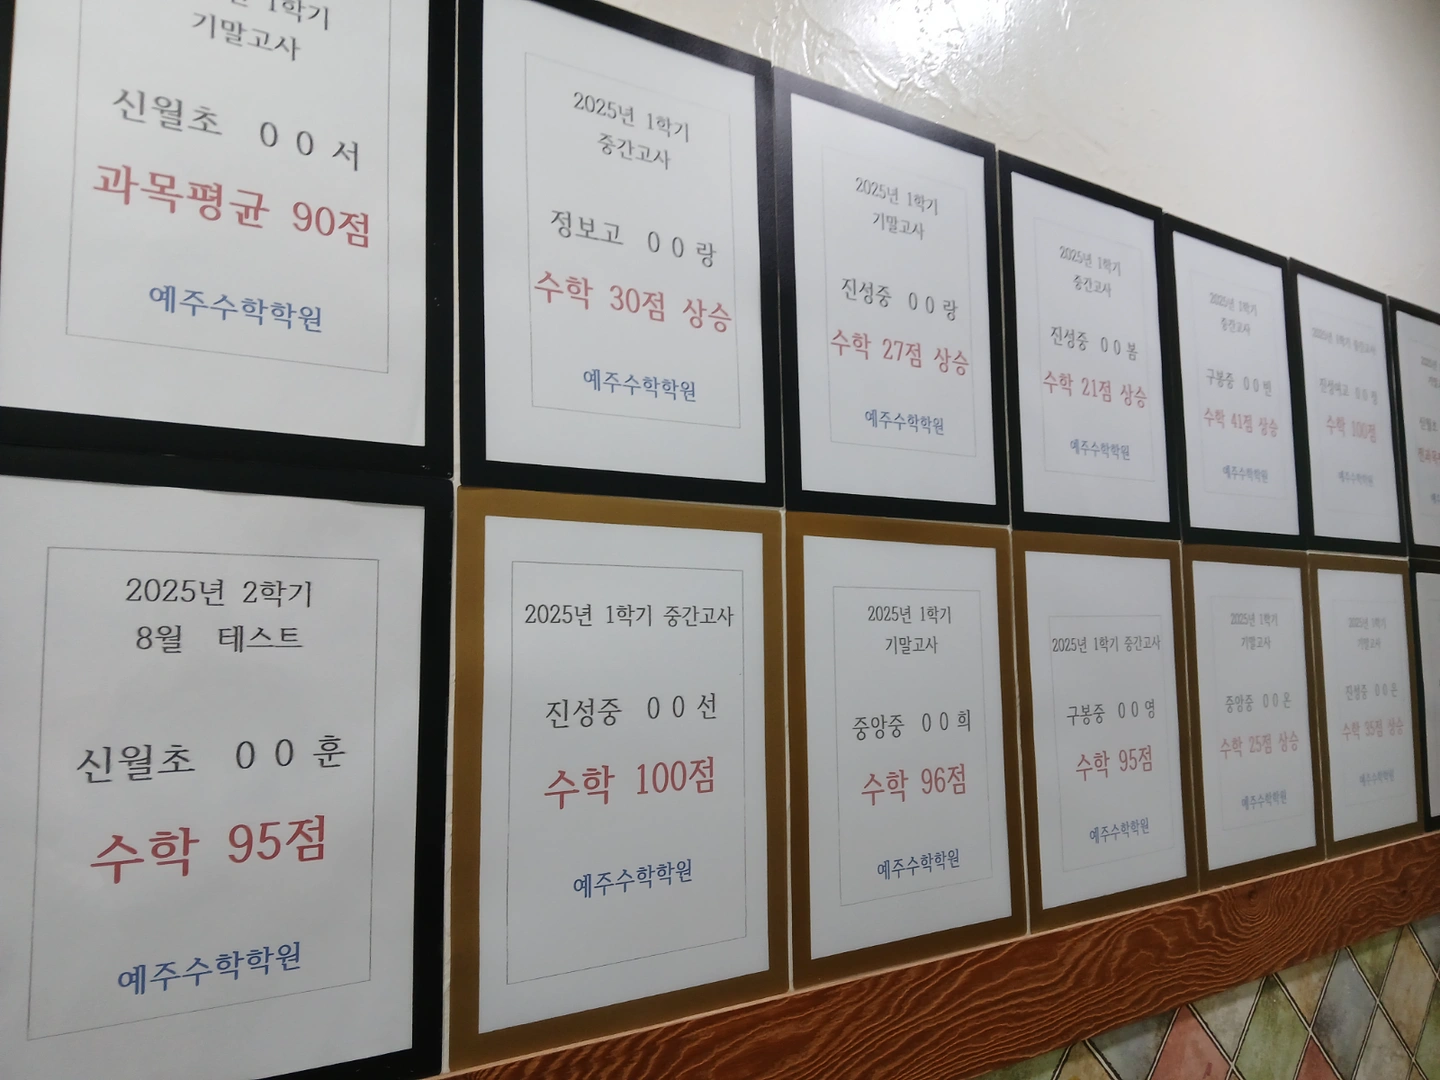 1학기
기말고사
신월초 0 0 서
과목평균 90점
예주수학학원
2025년 1학기
중간고사
정보고 0 0 랑
수학 30점 상승
예주수학학원
2025년 1학기
기말고사
진성중 0 0 랑
수학 27점 상승
예주수학학원
2025년 1학기
중간고사
진성중 0 0 봄
수학 21점 상승
예주수학학원
2025년 1학기
중간고사
구봉중 0 0 빈
수학 41점 상승
예주수학학원
2025년 1학기 중간고사
진성여고 0 0
수학 100점
예주수학학원
2025년 2학기
8월 테스트
신월초 0 0 훈
수학 95점
예주수학학원
2025년 1학기 중간고사
진성중 0 0 선
수학 100점
예주수학학원
2025년 1학기
기말고사
중앙중 0 0 희
수학 96점
예주수학학원
2025년 1학기 중간고사
구봉중 0 0 영
수학 95점
예주수학학원
2025년 1학기
기말고사
중앙중 0 0 온
수학 25점 상승
예주수학학원
2025년 1학기
기말고사
진성중 0 0 은
수학 35점 상승
예주수학학원